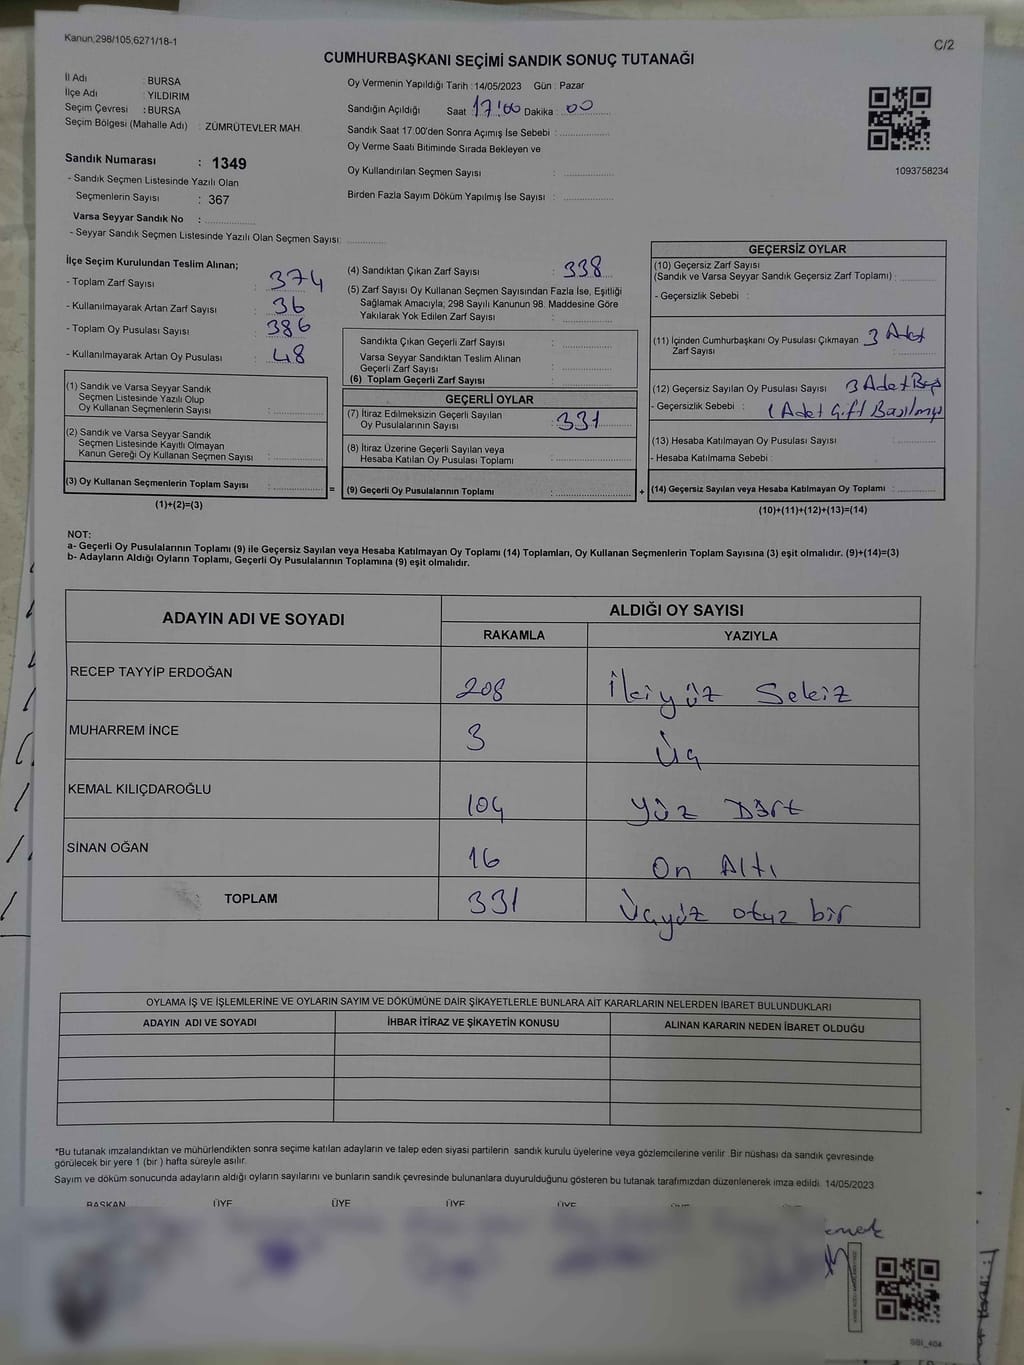 Kanun;298/105,6271/18-1
C/2
CUMHURBAŞKANI SEÇİMİ SANDIK SONUÇ TUTANAĞI
İl Adı : BURSA
İlçe Adı : YILDIRIM
Seçim Çevresi : BURSA
Seçim Bölgesi (Mahalle Adı) : ZÜMRÜTEVLER MAH.
Sandık Numarası : 1349
- Sandık Seçmen Listesinde Yazılı Olan
Seçmenlerin Sayısı : 367
Varsa Seyyar Sandık No :
- Seyyar Sandık Seçmen Listesinde Yazılı Olan Seçmen Sayısı:
Oy Vermenin Yapıldığı Tarih : 14/05/2023 Gün : Pazar
Sandığın Açıldığı Saat 17:00 Dakika : 00
Sandık Saat 17.00'den Sonra Açımış İse Sebebi :
Oy Verme Saati Bitiminde Sırada Bekleyen ve
Oy Kullandırılan Seçmen Sayısı :
Birden Fazla Sayım Döküm Yapılmış İse Sayısı :
1093758234
İlçe Seçim Kurulundan Teslim Alınan;
- Toplam Zarf Sayısı : 374
- Kullanılmayarak Artan Zarf Sayısı : 36
- Toplam Oy Pusulası Sayısı : 386
- Kullanılmayarak Artan Oy Pusulası : 48
(1) Sandık ve Varsa Seyyar Sandık
Seçmen Listesinde Yazılı Olup
Oy Kullanan Seçmenlerin Sayısı :
(2) Sandık ve Varsa Seyyar Sandık
Seçmen Listesinde Kayıtlı Olmayan
Kanun Gereği Oy Kullanan Seçmen Sayısı :
(3) Oy Kullanan Seçmenlerin Toplam Sayısı :
(1)+(2)=(3)
=
(4) Sandıktan Çıkan Zarf Sayısı : 338
(5) Zarf Sayısı Oy Kullanan Seçmen Sayısından Fazla İse, Eşitliği
Sağlamak Amacıyla; 298 Sayılı Kanunun 98. Maddesine Göre
Yakılarak Yok Edilen Zarf Sayısı :
Sandıkta Çıkan Geçerli Zarf Sayısı :
Varsa Seyyar Sandıktan Teslim Alınan
Geçerli Zarf Sayısı :
(6) Toplam Geçerli Zarf Sayısı :
GEÇERLİ OYLAR
(7) İtiraz Edilmeksizin Geçerli Sayılan
Oy Pusulalarının Sayısı : 331
(8) İtiraz Üzerine Geçerli Sayılan veya
Hesaba Katılan Oy Pusulası Toplamı :
(9) Geçerli Oy Pusulalarının Toplamı :
+
GEÇERSİZ OYLAR
(10) Geçersiz Zarf Sayısı
(Sandık ve Varsa Seyyar Sandık Geçersiz Zarf Toplamı) :
- Geçersizlik Sebebi :
(11) İçinden Cumhurbaşkanı Oy Pusulası Çıkmayan 3 Adet
Zarf Sayısı :
(12) Geçersiz Sayılan Oy Pusulası Sayısı 3 Adet Boş
- Geçersizlik Sebebi : 1 Adet Çift Basılmış
(13) Hesaba Katılmayan Oy Pusulası Sayısı :
- Hesaba Katılmama Sebebi :
(14) Geçersiz Sayılan veya Hesaba Katılmayan Oy Toplamı :
(10)+(11)+(12)+(13)=(14)
NOT:
a- Geçerli Oy Pusulalarının Toplamı (9) ile Geçersiz Sayılan veya Hesaba Katılmayan Oy Toplamı (14) Toplamları, Oy Kullanan Seçmenlerin Toplam Sayısına (3) eşit olmalıdır. (9)+(14)=(3)
b- Adayların Aldığı Oyların Toplamı, Geçerli Oy Pusulalarının Toplamına (9) eşit olmalıdır.
ADAYIN ADI VE SOYADI
ALDIĞI OY SAYISI
RAKAMLA YAZIYLA
RECEP TAYYİP ERDOĞAN 208 İkiyüz Sekiz
MUHARREM İNCE 3 Üç
KEMAL KILIÇDAROĞLU 104 Yüz Dört
SİNAN OĞAN 16 On Altı
TOPLAM 331 Üçyüz otuz bir
OYLAMA İŞ VE İŞLEMLERİNE VE OYLARIN SAYIM VE DÖKÜMÜNE DAİR ŞİKAYETLERLE BUNLARA AİT KARARLARIN NELERDEN İBARET BULUNDUKLARI
ADAYIN ADI VE SOYADI İHBAR İTİRAZ VE ŞİKAYETİN KONUSU ALINAN KARARIN NEDEN İBARET OLDUĞU
*Bu tutanak imzalandıktan ve mühürlendikten sonra seçime katılan adayların ve talep eden siyasi partilerin sandık kurulu üyelerine veya gözlemcilerine verilir. Bir nüshası da sandık çevresinde
görülecek bir yere 1 (bir) hafta süreyle asılır.
Sayım ve döküm sonucunda adayların aldığı oyların sayılarını ve bunların sandık çevresinde bulunanlara duyurulduğunu gösteren bu tutanak tarafımızdan düzenlenerek imza edildi. 14/05/2023
BAŞKAN ÜYE ÜYE ÜYE ÜYE ÜYE